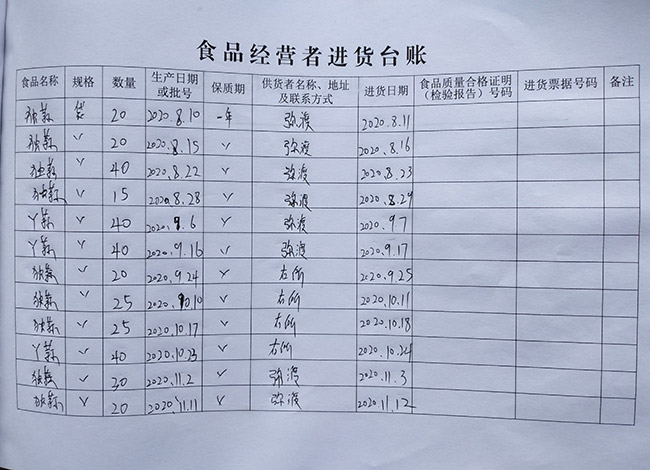 食品经营者进货台账
食品名称 规格 数量 生产日期或批号 保质期 供货者名称、地址及联系方式 进货日期 食品质量合格证明（检验报告）号码 进货票据号码 备注
独蒜 袋 20 2020.8.10 一年 弥渡 2020.8.11
独蒜 √ 20 2020.8.15 √ 弥渡 2020.8.16
独蒜 √ 40 2020.8.22 √ 弥渡 2020.8.23
独蒜 √ 15 2020.8.28 √ 弥渡 2020.8.29
丫蒜 √ 40 2020.9.6 √ 弥渡 2020.9.7
丫蒜 √ 40 2020.9.16 √ 弥渡 2020.9.17
独蒜 √ 20 2020.9.24 √ 右所 2020.9.25
独蒜 √ 25 2020.10.10 √ 右所 2020.10.11
独蒜 √ 25 2020.10.17 √ 右所 2020.10.18
丫蒜 √ 40 2020.10.23 √ 右所 2020.10.24
独蒜 √ 30 2020.11.2 √ 弥渡 2020.11.3
独蒜 √ 20 2020.11.11 √ 弥渡 2020.11.12